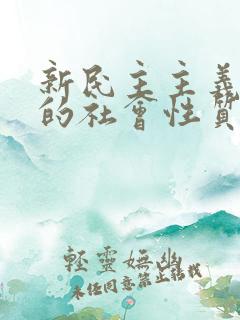 新民主主义
的社会性质
轻灵妩幽
未经同意禁止转载